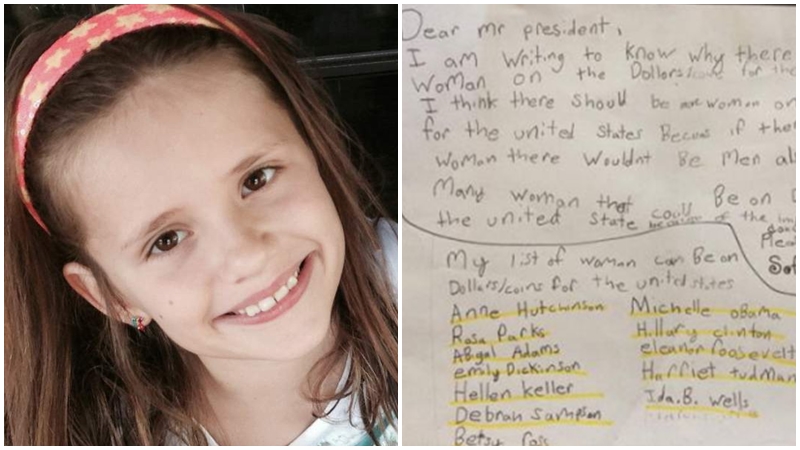 Dear mr president,
I am writing to know why there
Woman on the Dollars/coins for the
I think there should be more woman on
for the united states Becaus if ther
woman there wouldnt Be Men al
Many woman that could Be on
the united state because of the im
Plea
Sof
My list of woman can Be on
Dollars/coins for the united states
Anne Hutchinson Michelle obama
Rosa Parks Hillary clinton
Abigal Adams eleanor roosevelt
emily Dickinson Harriet tudman
Hellen keller Ida.B. wells
Debrah sampson
Betsy ross